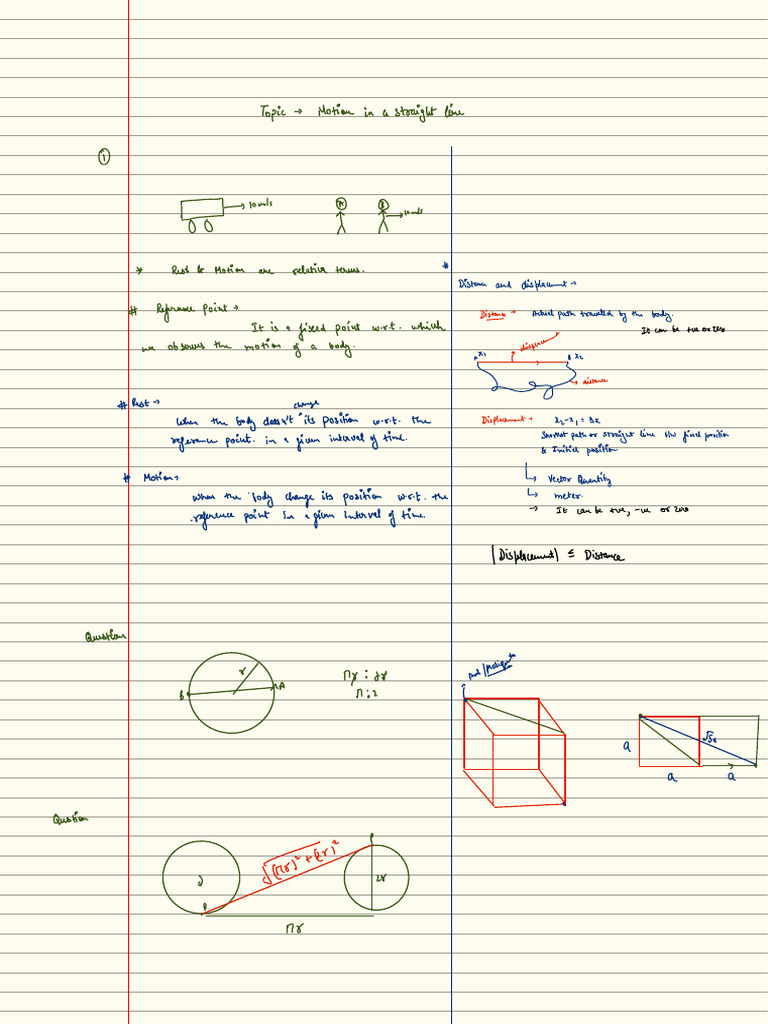 Topic → Motion in a straight line
①
→ 10 m/s
A B
→ 10 m/s
* Rest & Motion are relative terms.
# Reference Point →
It is a fixed point w.r.t. which
we observes the motion of a body.
# Rest →
change
when the body doesn't its position w.r.t. the
reference point. in a given interval of time.
# Motion →
when the body change its position w.r.t. the
reference point in a given interval of time.
Question
r
B A
πr : 2r
π : 2
Question
P
√(πr)² + (2r)²
2r
P
πr
#
Distance and displacement →
Distance → Actual path travelled by the body.
It can be +ve or zero
displacement
A x₁ B x₂
→ distance
Displacement → x₂ - x₁ = Δx
Shortest path or straight line b/w final position
& Initial position.
↳ Vector Quantity
↳ meter.
→ It can be +ve, -ve or zero
|Displacement| ≤ Distance
a
√5a
a a